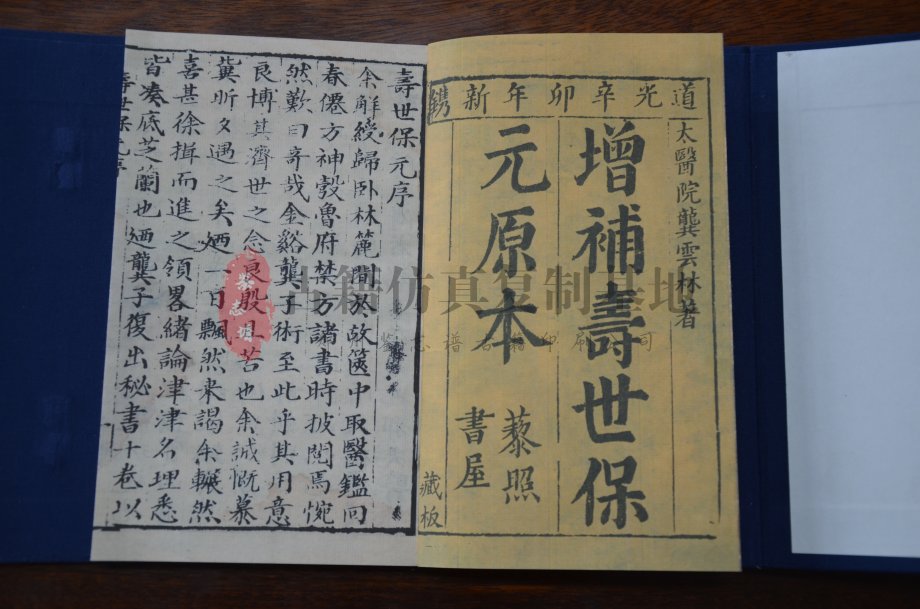 道光辛卯年新鐫
太醫院龔雲林著
增補壽世保
元原本
藜照
書屋
藏板
壽世保元序
余解綬歸卧林麓間於故篋中取醫鑑回
春僊方神彀魯府禁方諸書時披閱焉惋
然歎曰奇哉金谿龔子術至此乎其用意
良博其濟世之念良殷且苦也余誠慨慕
冀昕夕遇之矣迺一日飄然来謁余囅然
喜甚徐揖而進之領畧緒論津津名理悉
皆凑底芝蘭也迺龔子復出秘書十卷以
壽世保元序
古籍仿真复制基地